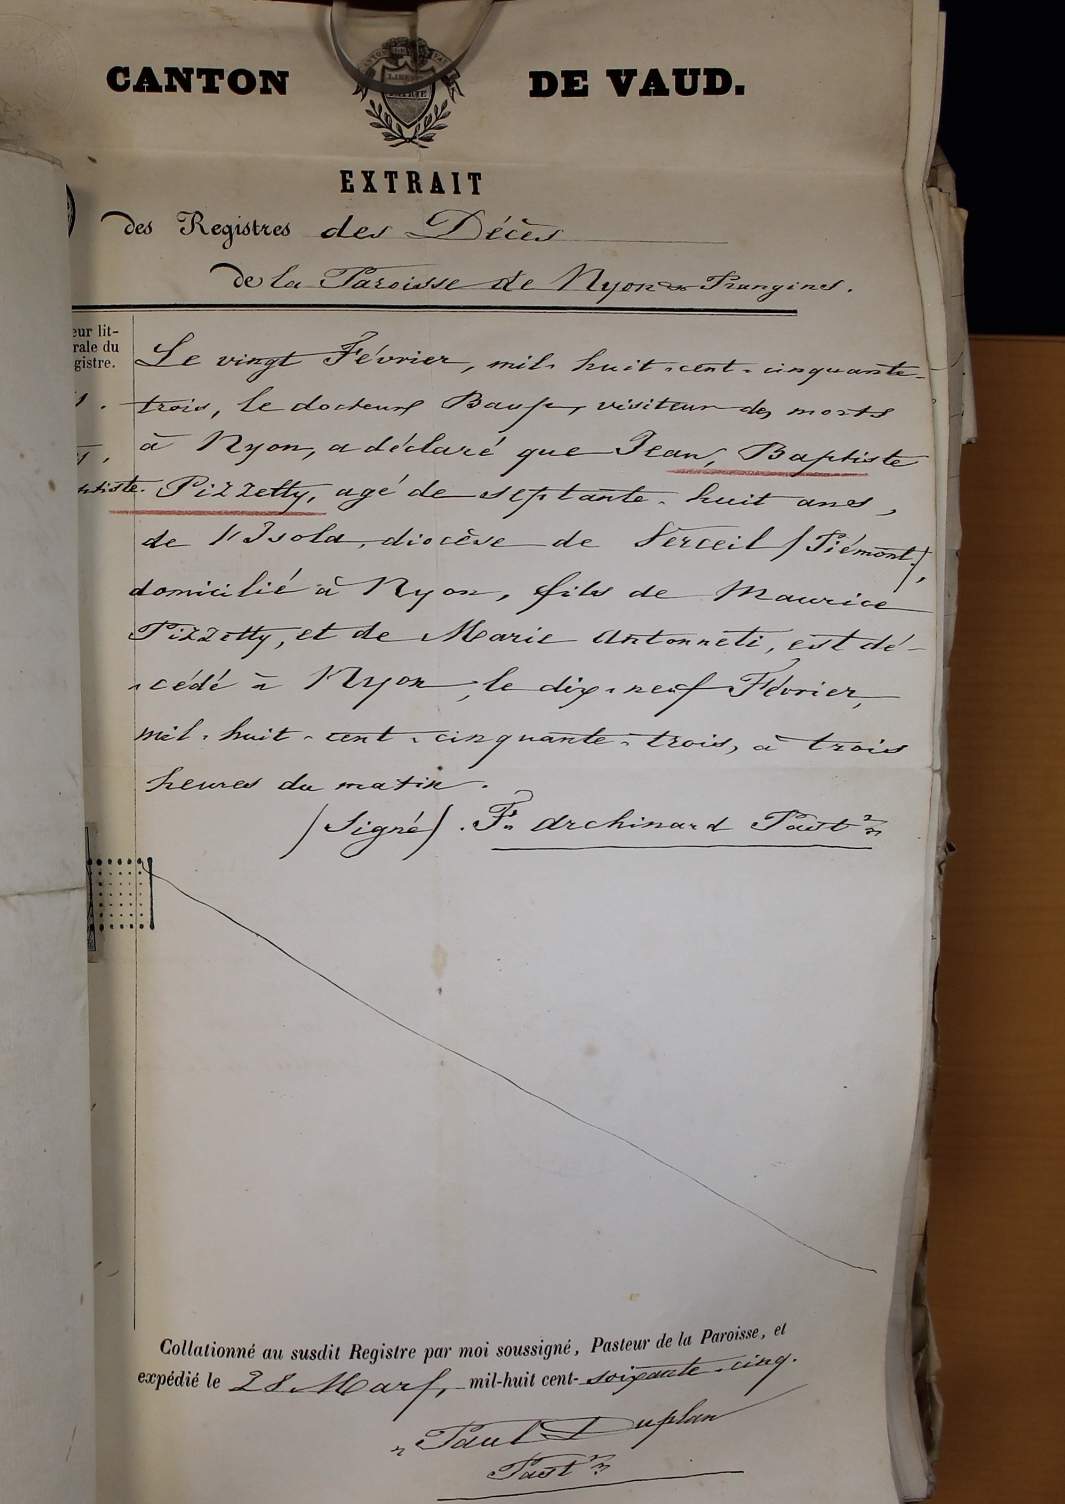 CANTON DE VAUD.
EXTRAIT
des Registres des Décès
de la Paroisse de Nyon & Prangines.
eur lit-
rale du
gistre.
Le vingt Février, mil-huit-cent-cinquante-
trois, le docteur visiteur des morts
à Nyon, a déclaré que Jean, Baptiste
ptiste. Pizzetty, agé de septante-huit ans,
de l'Isola, diocèse de Verceil (Piémont),
domicilié à Nyon, fils de Maurice
Pizzetty, et de Marie Antonneti, est dé-
-cédé à Nyon, le dix-neuf Février,
mil-huit-cent-cinquante-trois, à trois
heures du matin.
(Signé). Fs. Archinard Past.r
Collationné au susdit Registre par moi soussigné, Pasteur de la Paroisse, et
expédié le 28 Mars, mil-huit cent-soixante-cinq.
Paul Duplan
Past.r